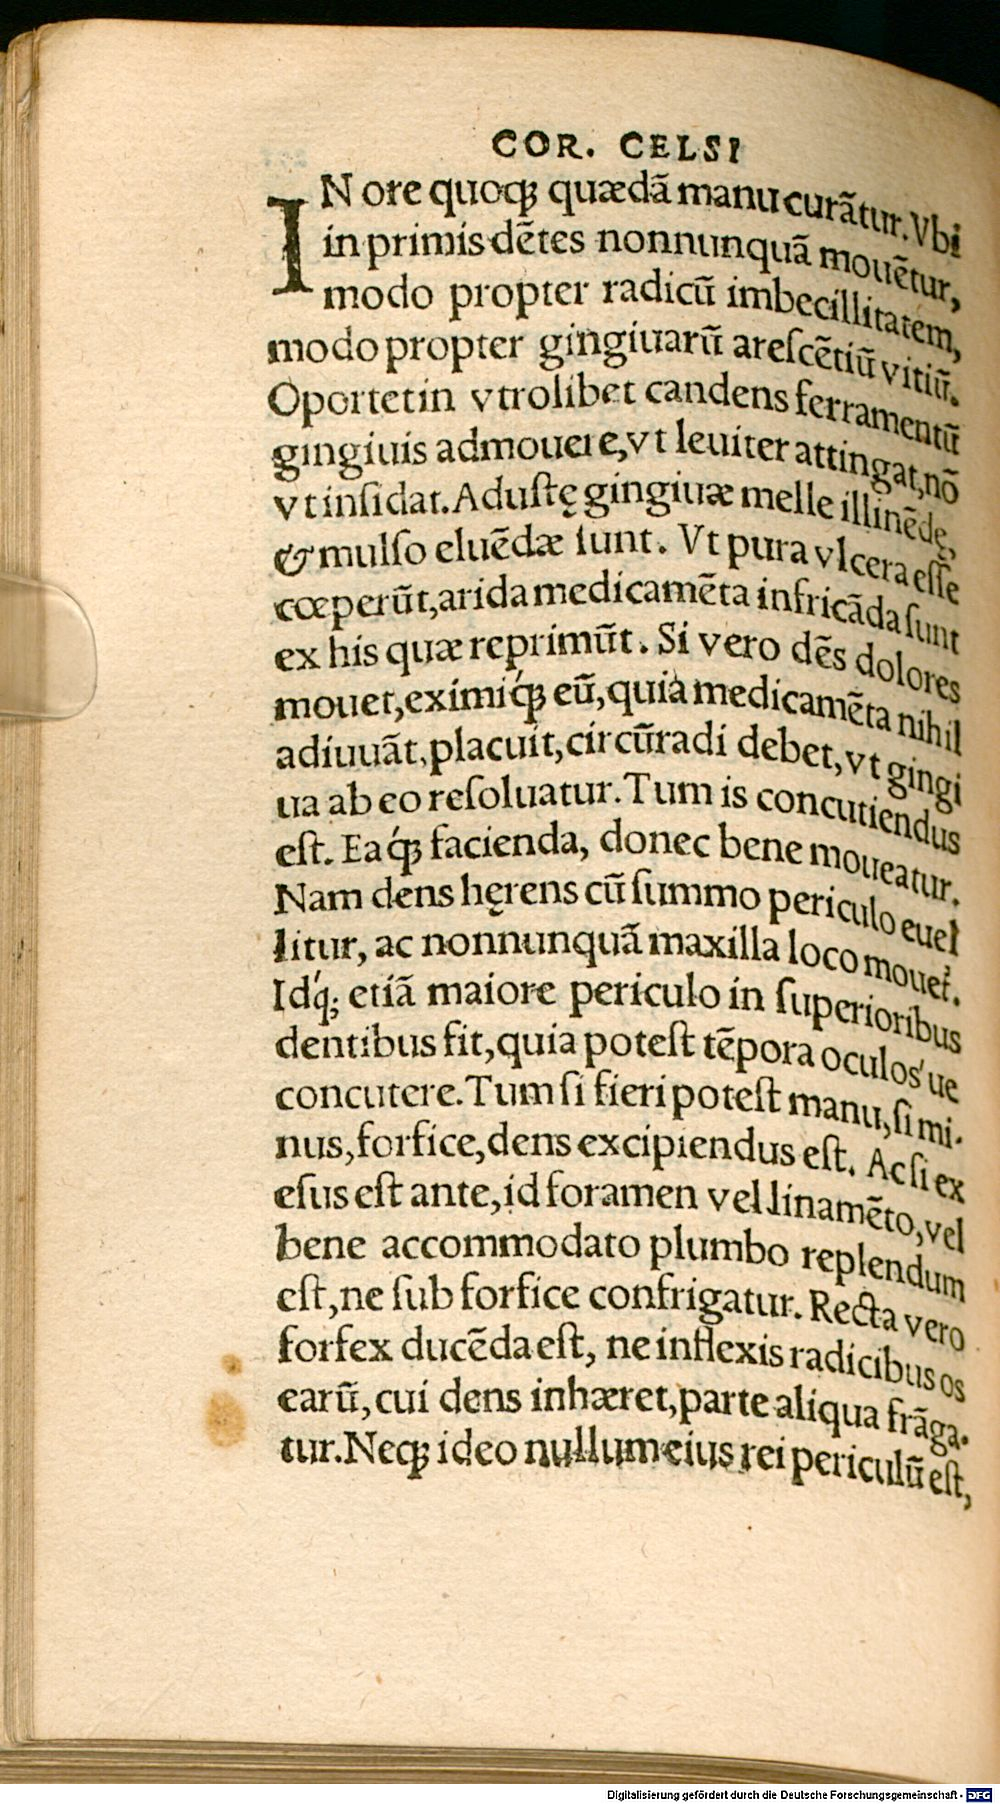 COR. CELSI
IN ore quoqꝫ quædã manu curãtur. Vbi
in primis dẽtes nonnunquã mouẽtur,
modo propter radicũ imbecillitatem,
modo propter gingiuarũ areſcẽtiũ vitiũ.
Oportet in vtrolibet candens ferramentũ
gingiuis admouere, vt leuiter attingat, nõ
vt inſidat. Aduſtę gingiuæ melle illinẽdę,
& mulſo eluẽdæ ſunt. Vt pura vlcera eſſe
cœperũt, arida medicamẽta infricãda ſunt
ex his quæ reprimũt. Si vero dẽs dolores
mouet, eximiq́ꝫ eũ, quia medicamẽta nihil
adiuuãt, placuit, circũradi debet, vt gingi
ua ab eo reſoluatur. Tum is concutiendus
eſt. Eaq́ꝫ facienda, donec bene moueatur.
Nam dens hęrens cũ ſummo periculo euel
litur, ac nonnunquã maxilla loco mouet̃.
Idq́; etiã maiore periculo in ſuperioribus
dentibus fit, quia poteſt tẽpora oculos've
concutere. Tum ſi fieri poteſt manu, ſi mi-
nus, forfice, dens excipiendus eſt. Ac ſi ex
eſus eſt ante, id foramen vel linamẽto, vel
bene accommodato plumbo replendum
eſt, ne ſub forfice confrigatur. Recta vero
forfex ducẽda eſt, ne inflexis radicibus os
earũ, cui dens inhæret, parte aliqua frãga-
tur. Neqꝫ ideo nullum eius rei periculũ eſt,
Digitalisierung gefördert durch die Deutsche Forschungsgemeinschaft - DFG